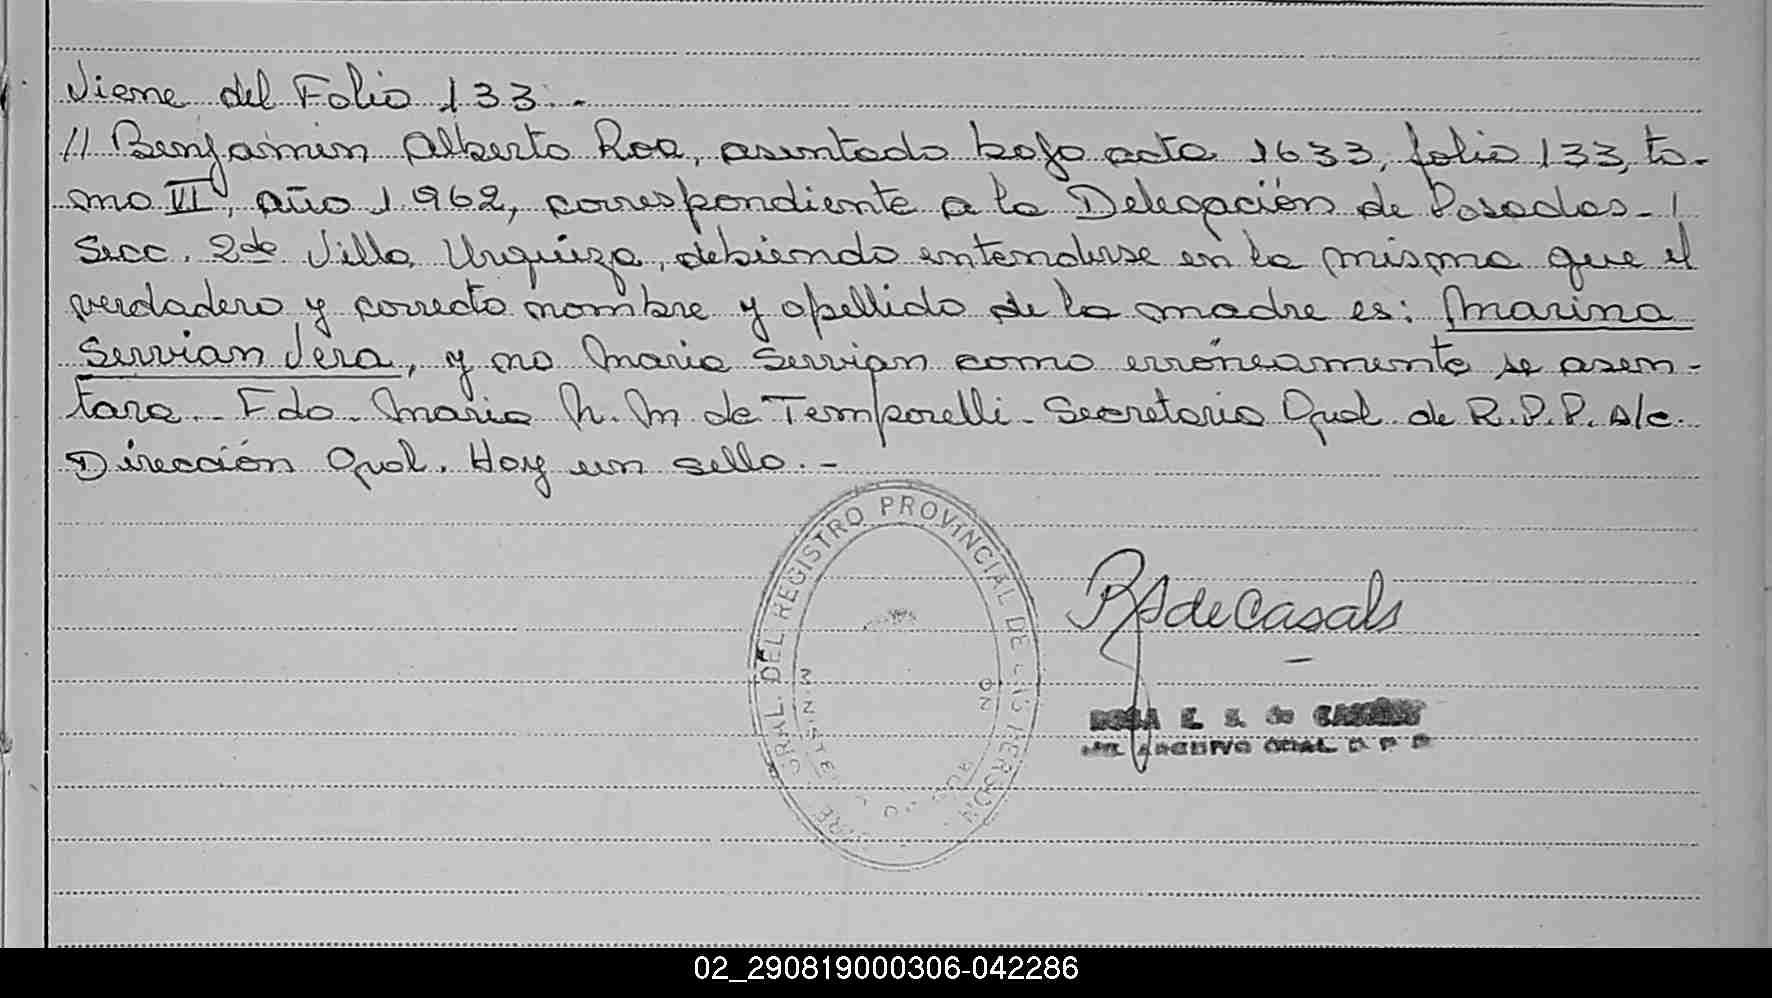 Viene del Folio 133.-
// Benjamin Alberto Roa, asentado bajo acta 1633, folio 133, to-
mo VI, año 1.962, correspondiente a la Delegación de Posadas - 
Secc. 2da. Villa Urquiza, debiendo entenderse en la misma que el
verdadero y correcto nombre y apellido de la madre es: Marina
Servian Vera, y no Maria Servian como erróneamente se asen-
tara. Fdo. Maria N. M de Temporelli - Secretaria Gral. de R.P.P. A/c.
Dirección Gral. Hay un sello.-
GRAL. DEL REGISTRO PROVINCIAL DE LAS PERSON
MINISTE
R S de Casals
ROSA E. S. de CASALS
ARCHIVO GRAL.
02_290819000306-042286